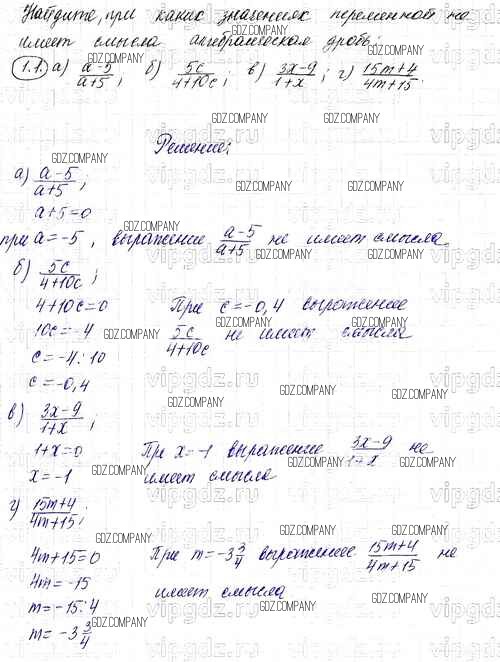 Найдите, при каких значениях переменной не
имеет смысла алгебраическая дробь:
1.1. а) a-5/a+5; б) 5c/4+10c; в) 3x-9/1+x; г) 15m+4/4m+15.
Решение:
а) a-5/a+5;
a+5=0
при a=-5, выражение a-5/a+5 не имеет смысла.
б) 5c/4+10c;
4+10c=0 При c=-0,4 выражение
10c=-4 5c/4+10c не имеет смысла
c=-4:10
c=-0,4
в) 3x-9/1+x;
1+x=0 При x=-1 выражение 3x-9/1+x не
x=-1 имеет смысла
г) 15m+4/4m+15;
4m+15=0 При m=-3 3/4 выражение 15m+4/4m+15 не
4m=-15 имеет смысла
m=-15:4
m=-3 3/4
GDZ.COMPANY
vipgdz.ru